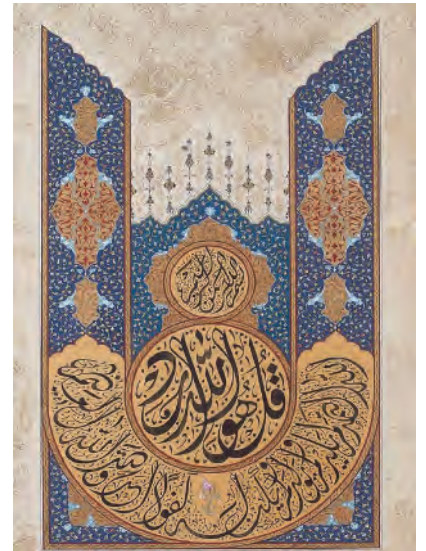 بسم الله الرحمن الرحيم
قل هو الله احد
الله الصمد لم يلد ولم يولد ولم يكن له كفوا احد صدق الله